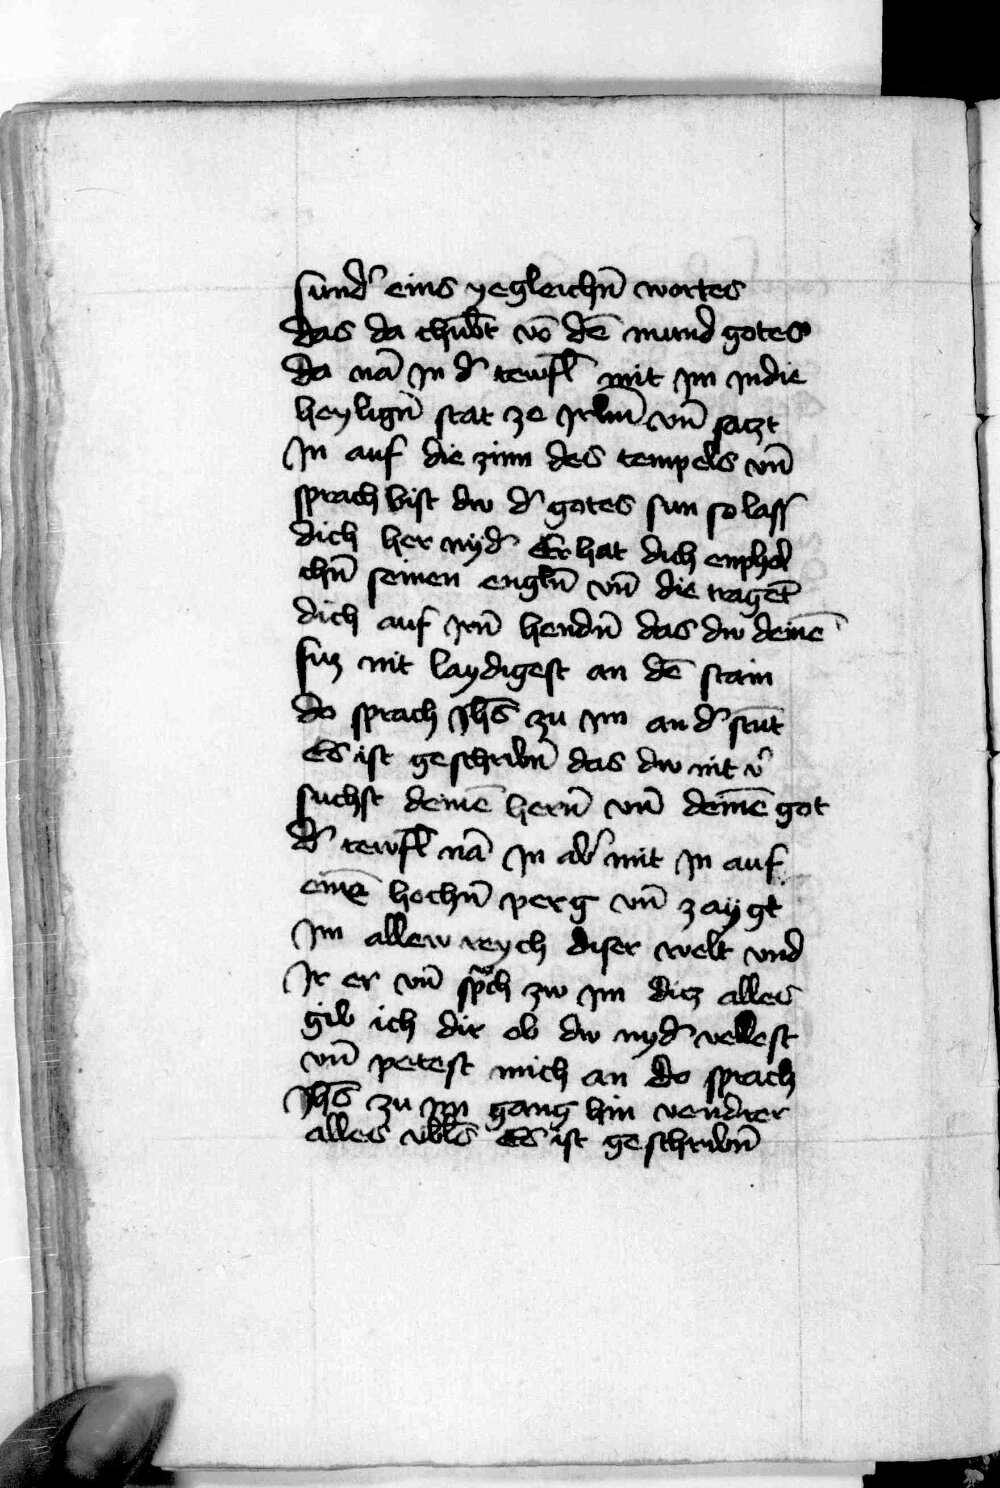 sund' eins yegleichn̄ wortes
das da chūbt vō dē mund gotes
da nā Jn d' tewfl̄ mit Jm Jndie
heylign̄ stat ze Jrl̄m vn̄ satzt
Jn auf die zinn des tempels vn̄
sprach bist dw d' gotes sun so lass
dich her nyd' Er hat dich enphol
chn̄ seinen engl̄n vn̄ die tragēt
dich auf Jrn̄ hendn̄ das dw deinē
fuz nit laydigest an dē stain
do sprach Jhs̄ zu Jm an d' stūt
Es ist geschribn̄ das dw nit v'
suchst deinē hern̄ vn̄ deinē got
d' tewfl̄ nā Jn ab' mit Jn auf
einē hochn̄ perg vn̄ zaygt
Jm allew reych diser welt vnd
Jr er vn̄ spͣch zw Jm ditz alles
gib ich dir ob dw nyd' vellest
vn̄ petest mich an do sprach
Jhs̄ zu Jm gang hin vendter
alles vbl̄s Es ist geschribn̄